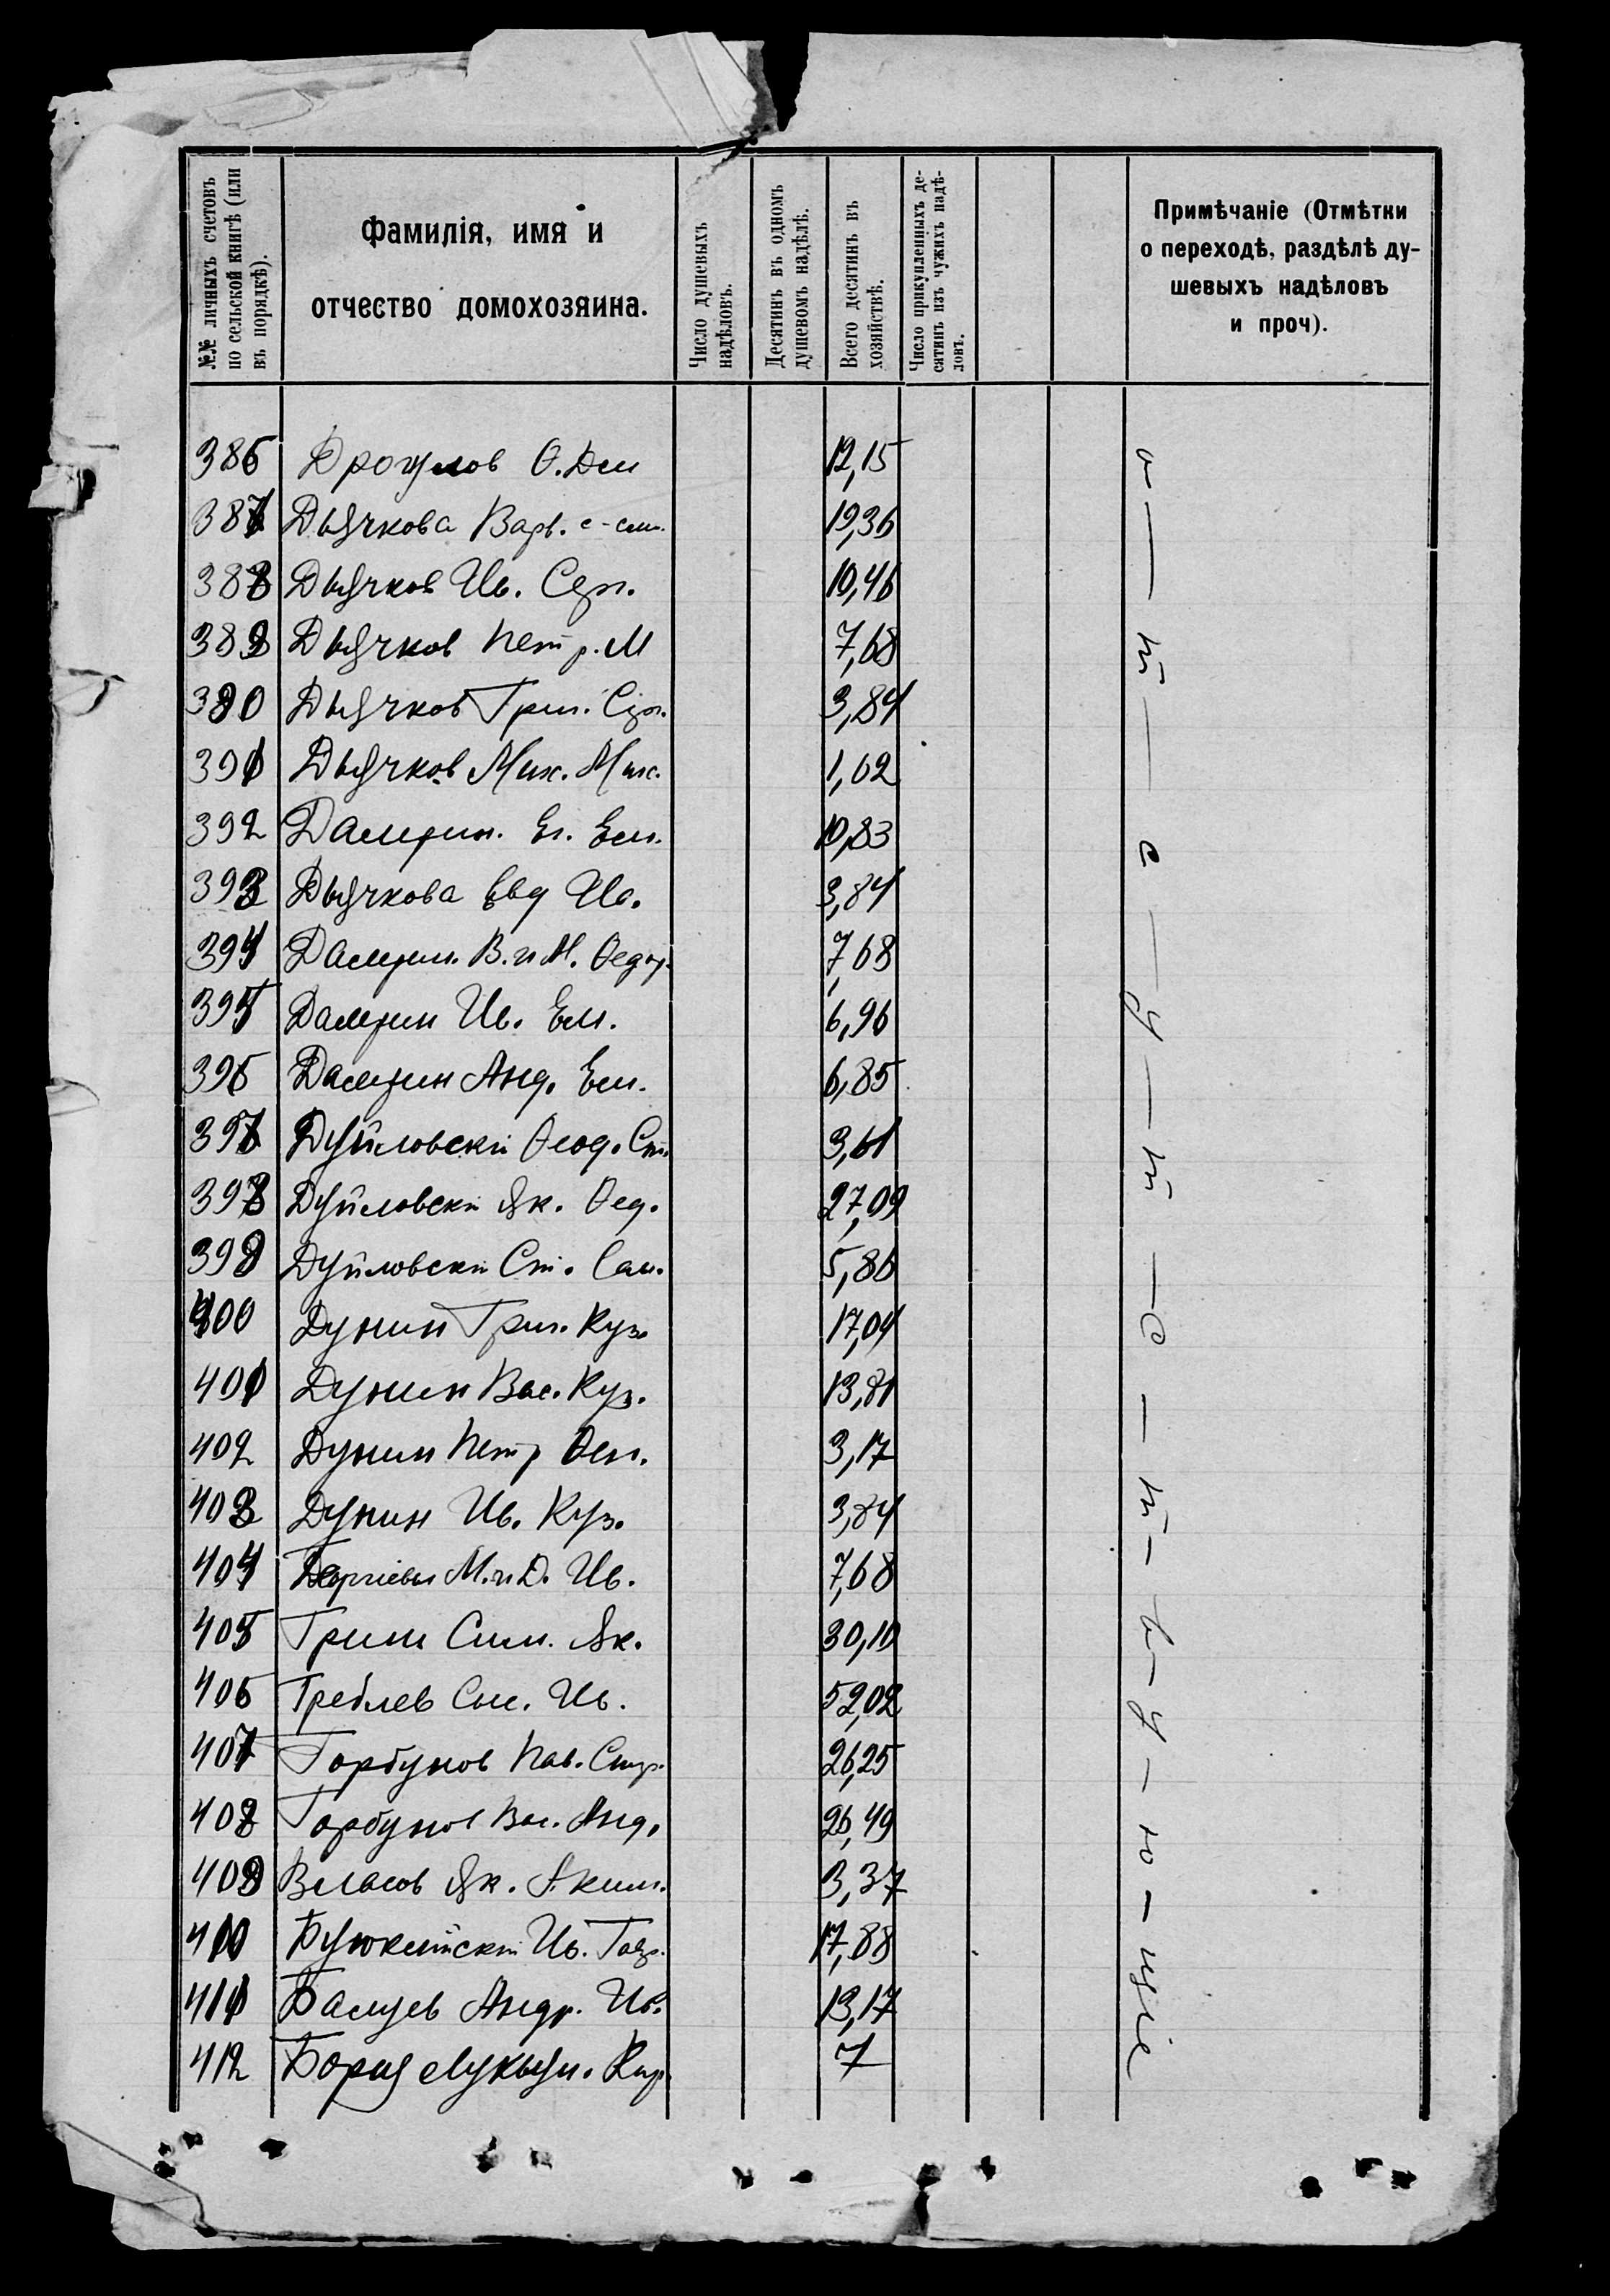 №№ личныхъ счетовъ по сельской книгѣ (или въ порядкѣ).
Фамилія, имя и отчество домохозяина.
Число душевыхъ надѣловъ.
Десятинъ въ одномъ душевомъ надѣлѣ.
Всего десятинъ въ хозяйствѣ.
Число прикупленныхъ десятинъ изъ чужихъ надѣловъ.
Примѣчаніе (Отмѣтки
о переходѣ, раздѣлѣ ду-
шевыхъ надѣловъ
и проч).
386 О. Дем 12,15
387 Дьячкова Варв. 19,36
388 Дьячков Ив. Серг. 10,46
389 Дьячков Петр. М 7,68
390 Дьячков Григ. Сер. 3,84
391 Дьячков Мих. Мих. 1,62
392 Ег. Ем. 10,83
393 Дьячкова Евд Ив. 3,84
394 В. и М. Ѳедор. 7,68
395 Ив. Ем. 6,96
396 Анд. Ем. 6,85
397 Дуйловскій Ѳеод. Ст. 3,61
398 Дуйловскій Як. Ѳед. 27,09
399 Дуйловскій Ст. Сам. 5,86
400 Дунин Григ. Куз. 17,04
401 Дунин Вас. Куз. 13,81
402 Дунин Петр 3,17
403 Дунин Ив. Куз. 3,84
404 М. и Д. Ив. 7,68
405 Сим. Як. 30,10
406 Греблев Ив. 52,02
407 Горбунов Пав. 26,25
408 Горбунов Вас. Анд. 26,49
409 Власов Як. Аким. 3,37
410 Ив. 17,88
411 Андр. Ив. 13,17
412 Лукьян. Кир. 7